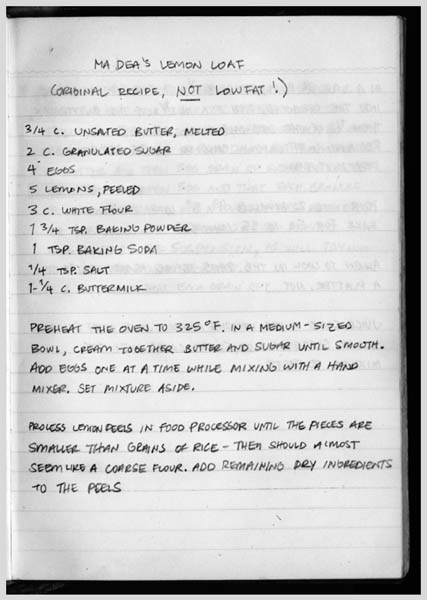 MA DEA'S LEMON LOAF
(ORIGINAL RECIPE, NOT LOWFAT!)
3/4 C. UNSALTED BUTTER, MELTED
2 C. GRANULATED SUGAR
4 EGGS
5 LEMONS, PEELED
3 C. WHITE FLOUR
1 3/4 TSP. BAKING POWDER
1 TSP. BAKING SODA
1/4 TSP. SALT
1-1/4 C. BUTTERMILK
PREHEAT THE OVEN TO 325°F. IN A MEDIUM-SIZED
BOWL, CREAM TOGETHER BUTTER AND SUGAR UNTIL SMOOTH.
ADD EGGS ONE AT A TIME WHILE MIXING WITH A HAND
MIXER. SET MIXTURE ASIDE.
PROCESS LEMON PEELS IN FOOD PROCESSOR UNTIL THE PIECES ARE
SMALLER THAN GRAINS OF RICE - THEY SHOULD ALMOST
SEEM LIKE A COARSE FLOUR. ADD REMAINING DRY INGREDIENTS
TO THE PEELS